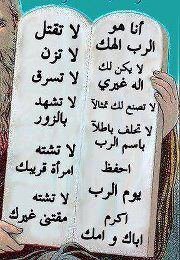 أنا هو
الرب الهك
لا يكن لك
اله غيري
لا تصنع لك تمثالاً
لا تحلف باطلاً
باسم الرب
احفظ
يوم الرب
اكرم
اباك و امك
لا تقتل
لا تزن
لا تسرق
لا تشهد
بالزور
لا تشته
امرأة قريبك
لا تشته
مقتنى غيرك